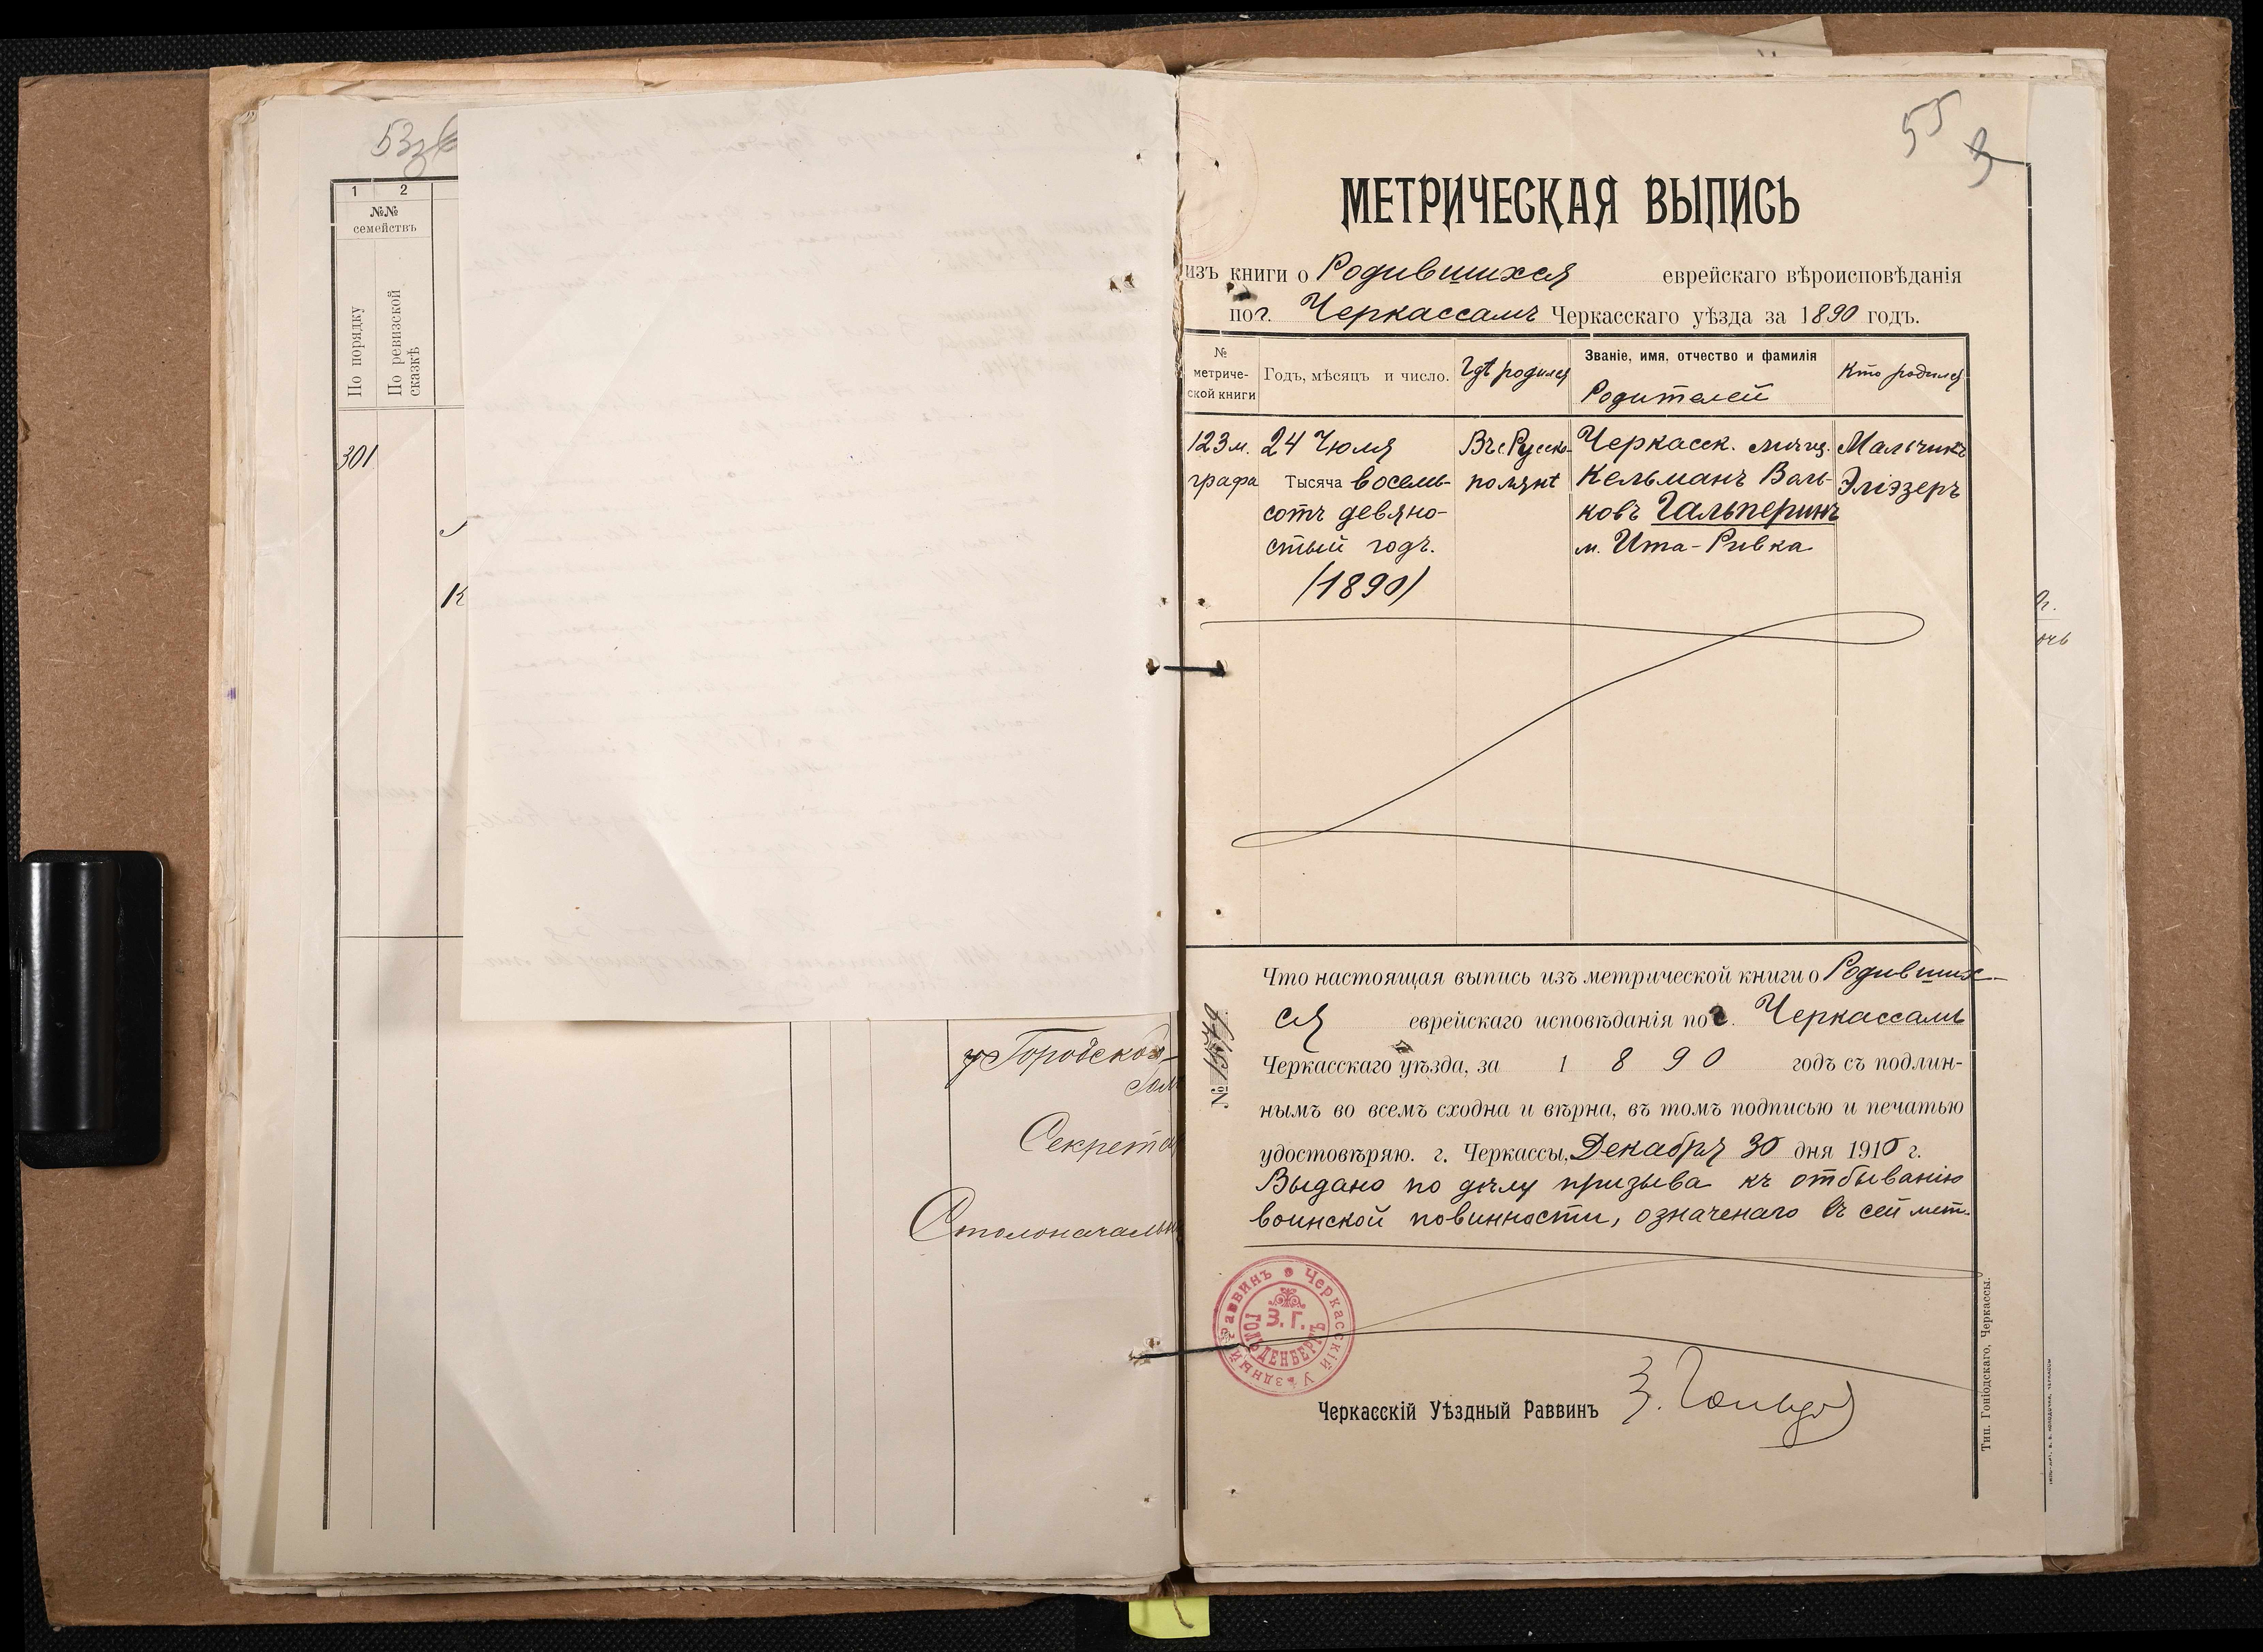 53зв
1 2
№№
семействъ
По порядку
По ревизской
сказкѣ
301
К
Городско
Секрета
Столоначальн
55
МЕТРИЧЕСКАЯ ВЫПИСЬ
изъ книги о Родившихся еврейскаго вѣроисповѣданія
по г. Черкассамъ Черкасскаго уѣзда за 1890 годъ.
№
метриче-
ской книги
Годъ, мѣсяцъ и число.
Гдѣ родился
Званіе, имя, отчество и фамилія
Родителей
Кто родился
123 м.
графа
24 Іюля
Тысяча восемь-
сотъ девяно-
стый годъ.
(1890)
Въ с. Русско-
полянѣ
Черкасск.
Кельманъ Воль-
ковъ Гальперинъ
м. Ита-Ривка
Мальчикъ
Эліэзеръ
Что настоящая выпись изъ метрической книги о Родивших-
ся еврейскаго исповѣданія по г. Черкассамъ
Черкасскаго уѣзда, за 1 8 9 0 годъ съ подлин-
нымъ во всемъ сходна и вѣрна, въ томъ подписью и печатью
удостовѣряю. г. Черкассы, Декабря 30 дня 1910 г.
Выдано по дѣлу призыва къ отбыванію
воинской повинности, означенаго въ сей мет.
№ 1579
Черкасскій Уѣздный Раввинъ
З. Г.
ГОЛЬДЕНБЕРГЪ
Черкасскій Уѣздный Раввинъ З. Гольд
Тип. Гоніодскаго, Черкассы.